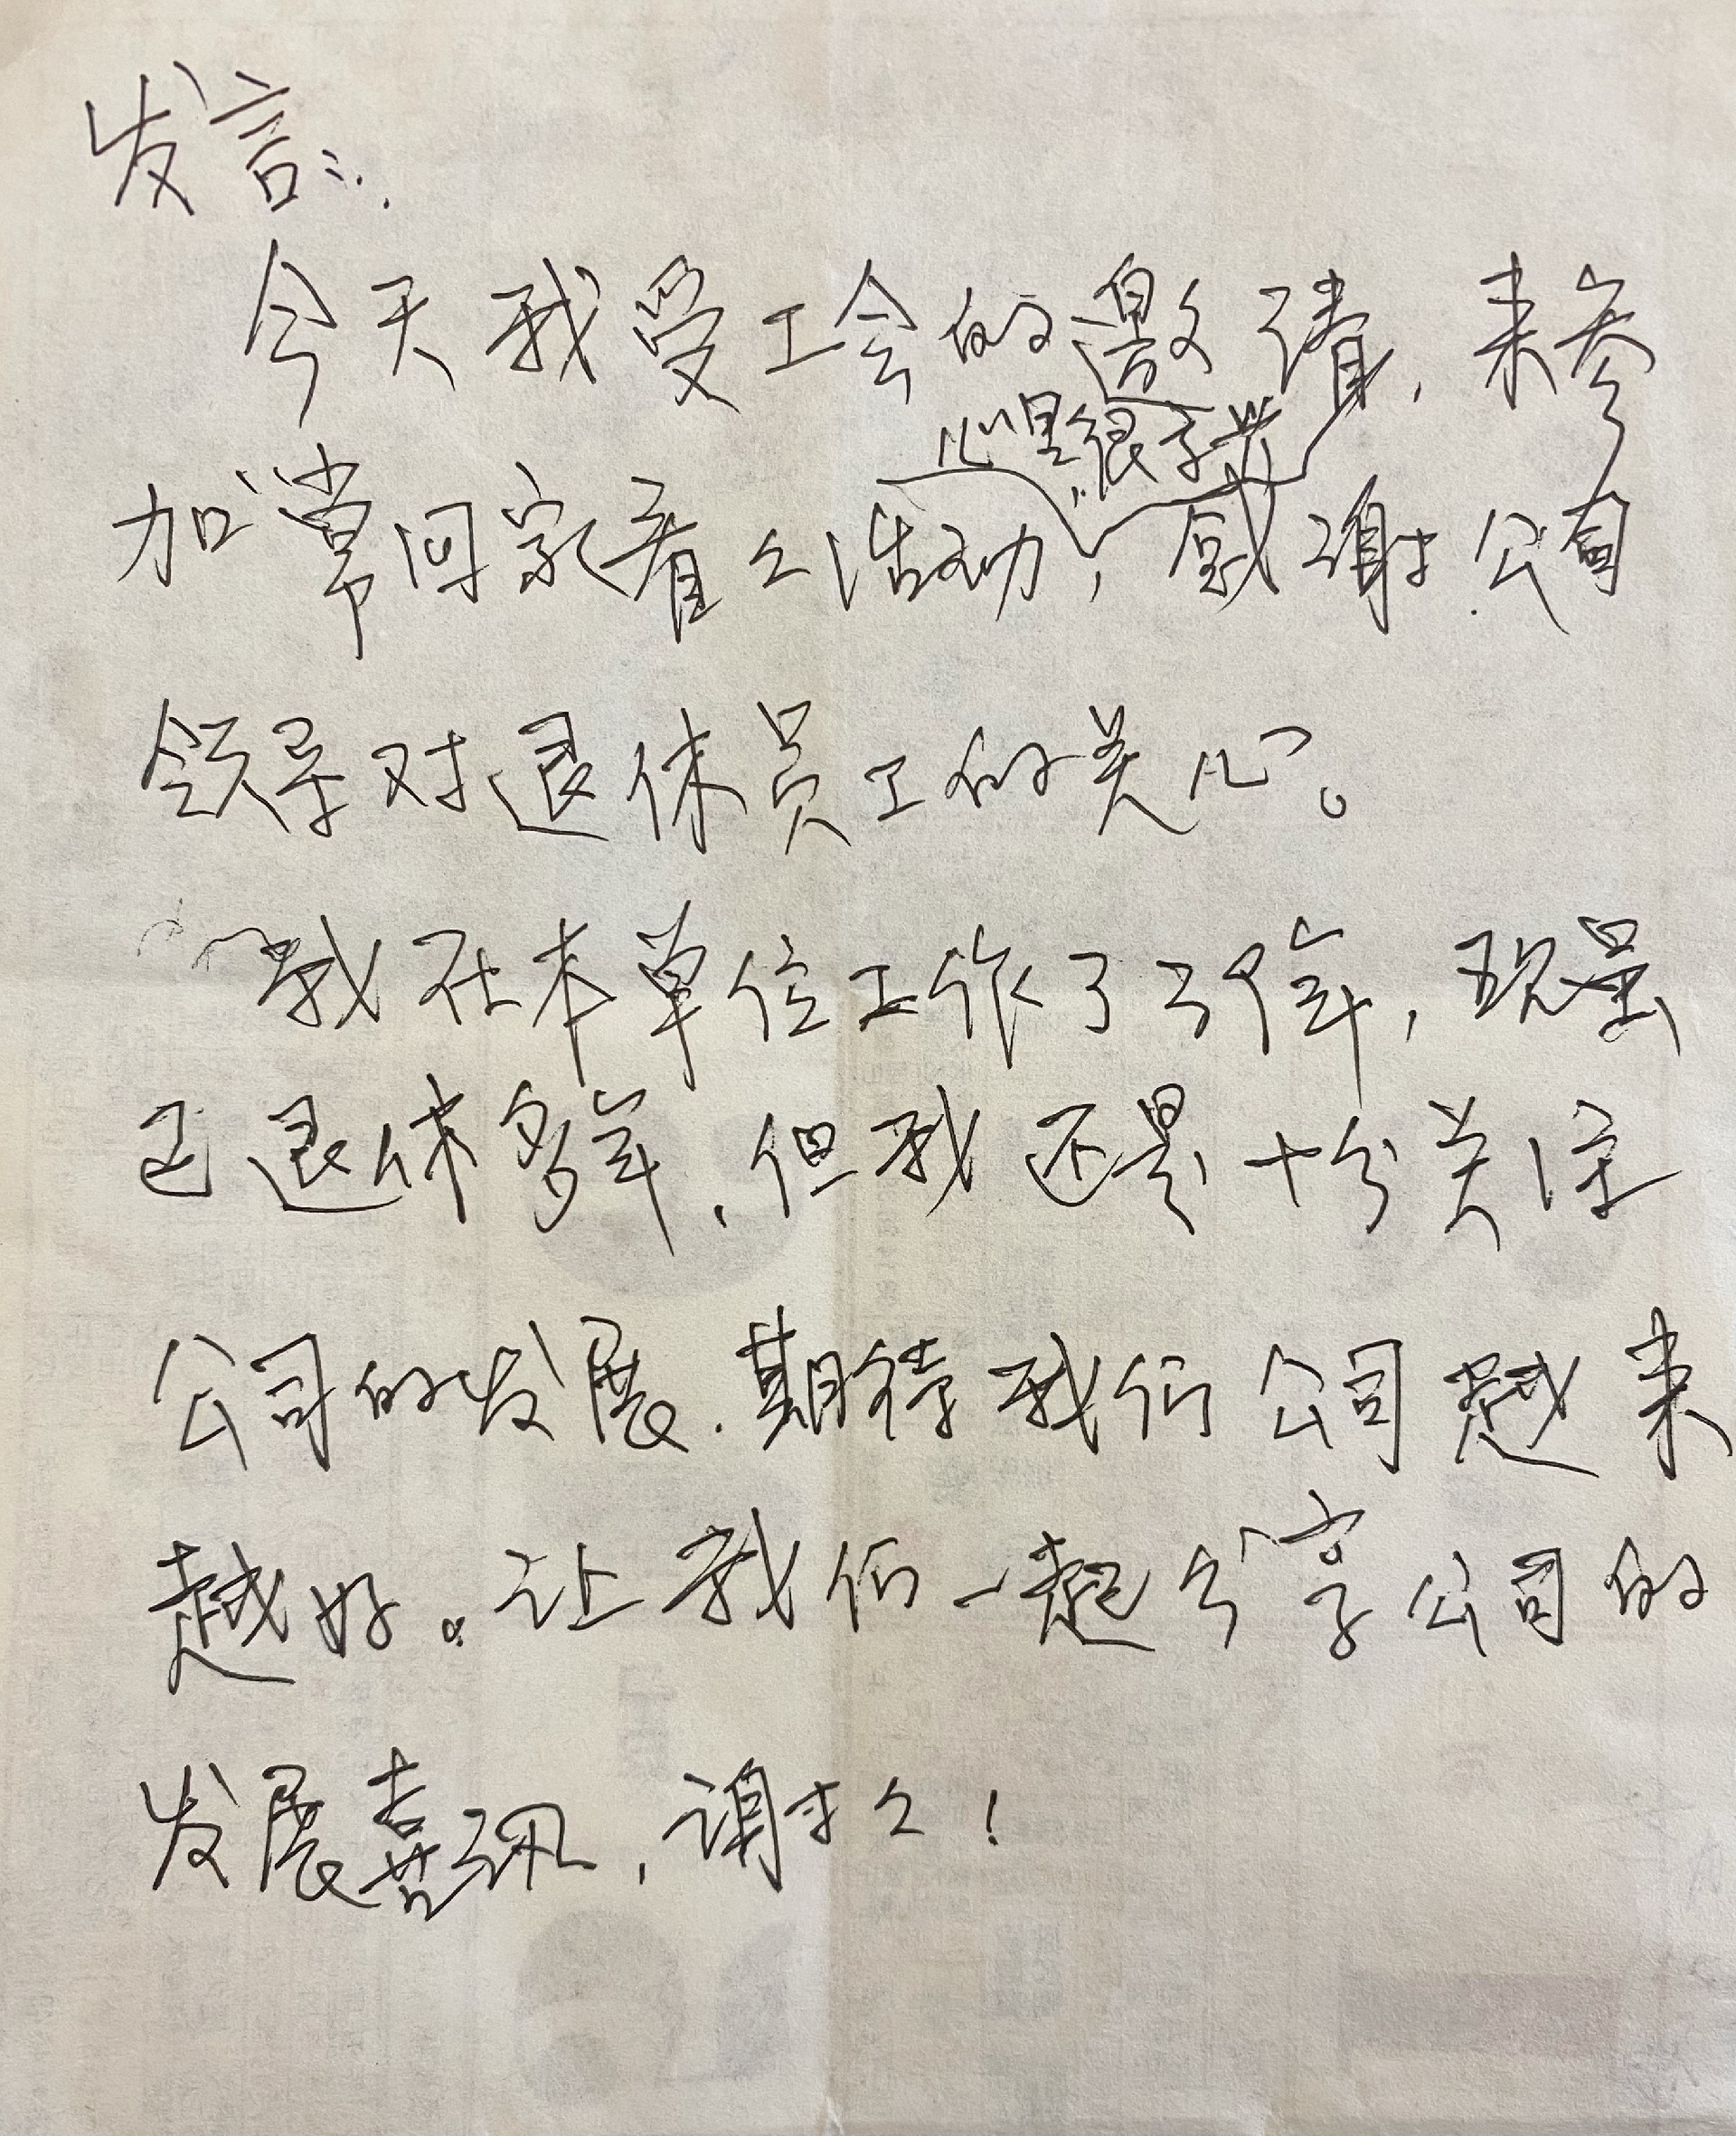 发言:
今天我受工会的邀请，来参
心里很高兴
加常回家看々活动，感谢公司
领导对退休员工的关心。
我在本单位工作了，现虽
已退休多年，但我还是十分关注
公司的发展．期待我们公司越来
越好。让我们一起分享公司的
发展喜讯，谢々！